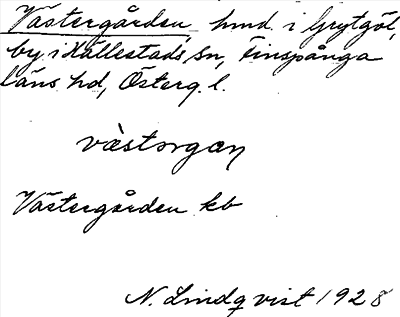 Västergården, hmd. i Grytgöl,
by, i Hällestads sn, Finspånga
läns hd, Österg. l.
västorgan
Västergården kb
N. Lindqvist 1928